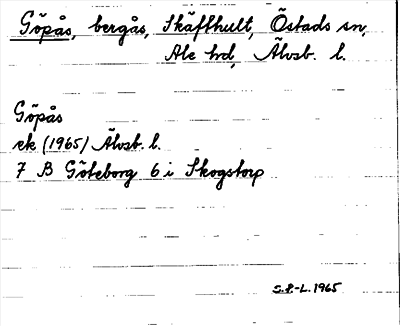 Göpås, bergås, Skäfthult, Östads sn,
Ale hd, Älvsb. l.
Göpås
ek (1965) Älvsb. l.
7 B Göteborg 6 i Skogstorp
S.P-L. 1965